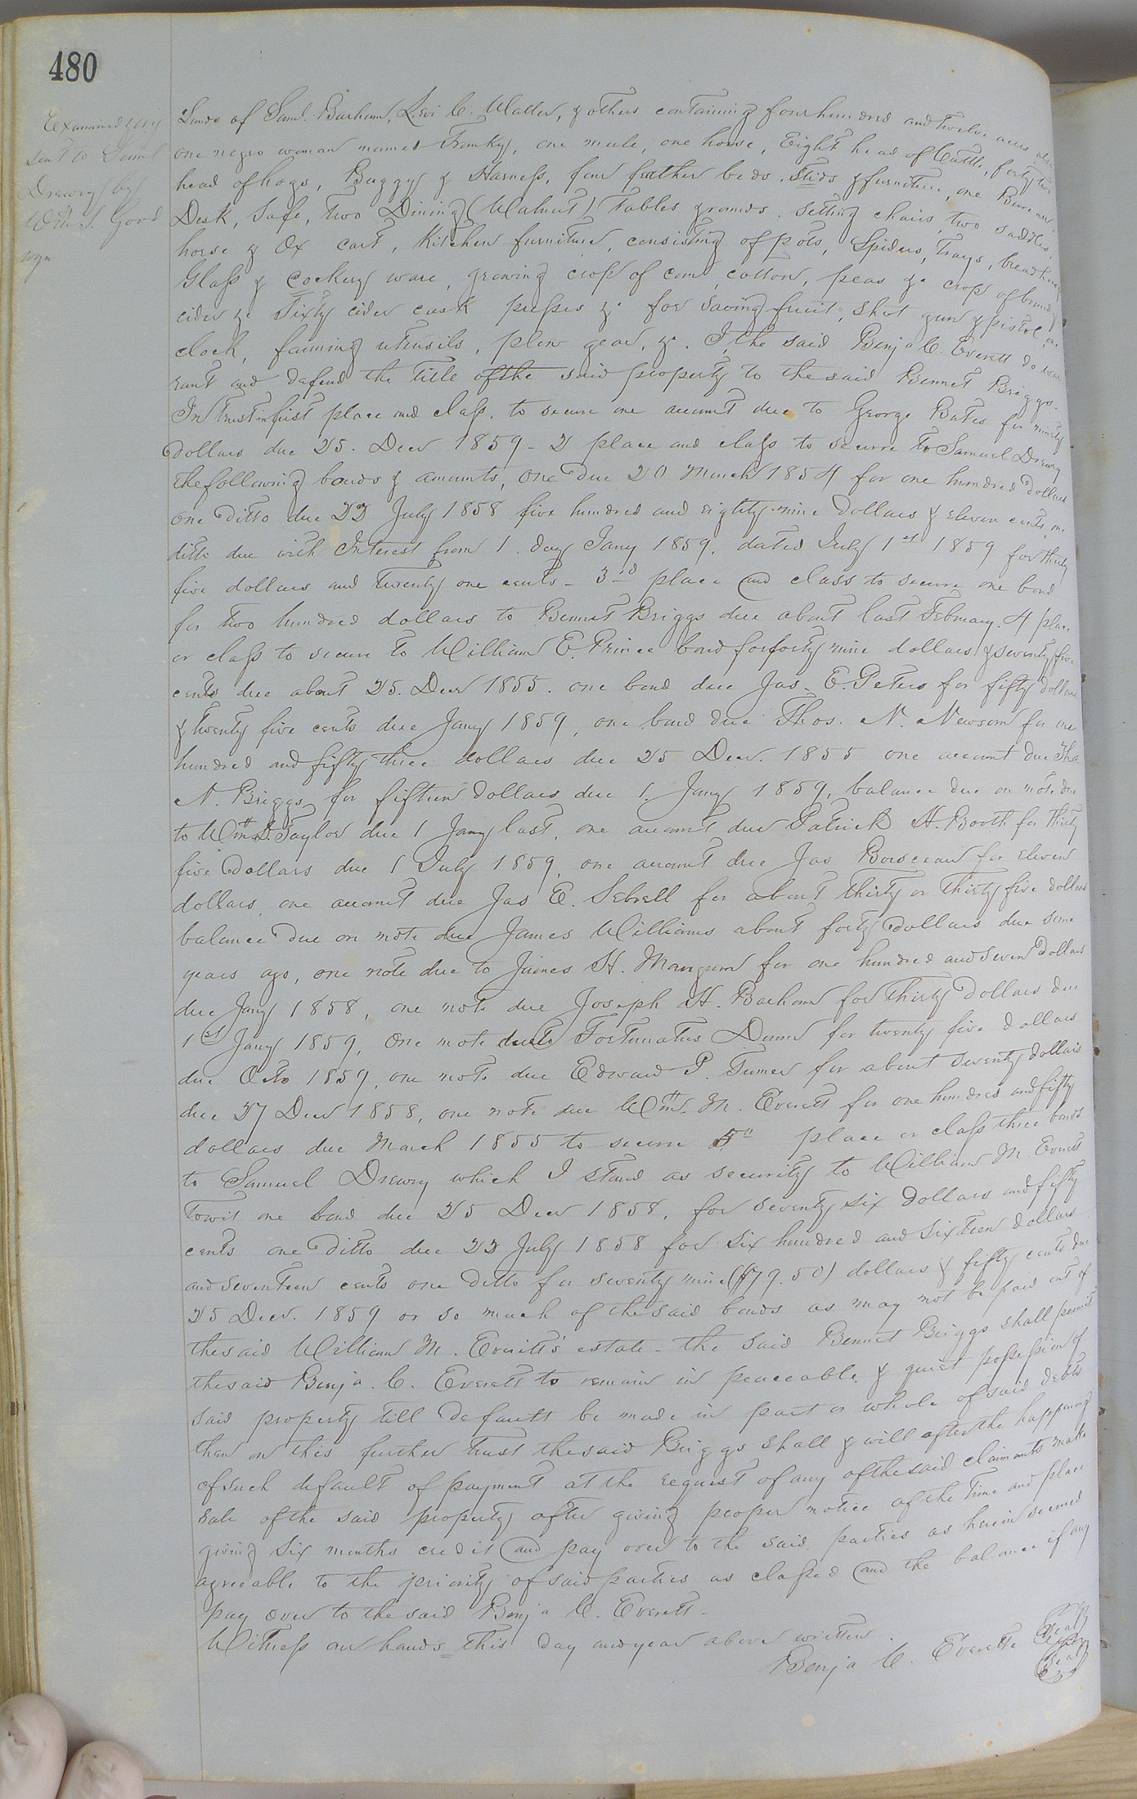 480
Examined &
sent to Saml
Drewry by
Wm S. Good
wyn
Lands of Saml. Barham, Levi C. Waller, & others containing four hundred and twelve acres also
one negro woman named Franky, one mule, one horse, Eight head of Cattle, forty two
head of hogs, Buggy & Harness, four feather beds Steds & furniture, one Bureau
Desk, Safe, Two Dining (Walnut) Tables & sitting chairs, two saddles
horse & Ox cart, Kitchen furniture, consisting of pots, Spiders, Trays, bread
Glass & Cockery ware, growing crop of corn, cotton, peas &c crop of brandy
cider &c Sixty cider cask presses &c for saving fruit, shot gun & pistol, one
clock, farming utensils, plow gear, &c. I, the said Benja C. Everett do war
rant and defend the title of the said property to the said Bennet Briggs.
In Trust in first place and class, to secure one account due to George Bates for ninety
Dollars due 25. Decr 1859 - 2 place and class to secure to Samuel Drewry
the following bonds & amounts, one due 20 March 1854 for one hundred Dollars
one Ditto due 22 July 1858 five hundred and eighty nine Dollars & eleven cents, one
ditto due with Interest from 1. day Jany 1859, dated July 1st 1859 for thirty
five dollars and twenty one cents - 3rd place and class to secure one bond
for two hundred dollars to Bennet Briggs due about last February. 4 place
or class to secure to William E. Prince bond for forty nine dollars & seventy five
cents due about 25. Decr 1855. one bond due Jas. E. Peters for fifty dollars
& twenty five cents due Jany 1859, one bond due Thos. N. Newsom for one
hundred and fifty three dollars due 25 Decr. 1855 one account due Thos
N. Briggs for fifteen dollars due 1. Jany 1859, balance due on note due
to Wm D. Taylor due 1 Jany last, one account due Patrick H. Booth for thirty
five Dollars due 1 July 1859, one account due Jas Boisseau for eleven
dollars, one account due Jas E. Sebrell for about thirty or thirty five dollars
balance due on note due James Williams about forty Dollars due some
years ago, one note due to James H. Mangum for one hundred and seven Dollars
due Jany 1858, one note due Joseph H. Barham for thirty Dollars due
1st Jany 1859, One note due to Fortunatus Dunn for twenty five dollars
due Octo 1859, one note due Edward P. Turner for about seventy dollars
due 27 Decr 1858, one note due Wm. M. Everett for one hundred and fifty
dollars due March 1855 to secure 5th place or class three bonds
to Samuel Drewry which I stand as security to William M Everett
Towit one bond due 25 Decr 1858, for seventy six dollars and fifty
cents one Ditto due 22 July 1858 for six hundred and sixteen dollars
and seventeen cents one Ditto for seventy nine ($79.50) dollars & fifty cents due
25 Decr. 1859 or so much of the said bonds as may not be paid out of
the said William M. Everitt's estate - the said Bennet Briggs shall permit
the said Benja. C. Everett to remain in peaceable & quiet possession of
said property till default be made in part or whole of said debts
then on this further trust the said Briggs shall & will after the happening
of such default of payment at the request of any of the said claimants make
sale of the said property after giving proper notice of the Time and place
giving six months credit and pay over to the said parties as herein secured
agreeable to the priority of said parties as classed and the balance if any
pay over to the said Benja C. Everett.
Witness our hands this day and year above written.
Benja C. Everette Seal
Seal